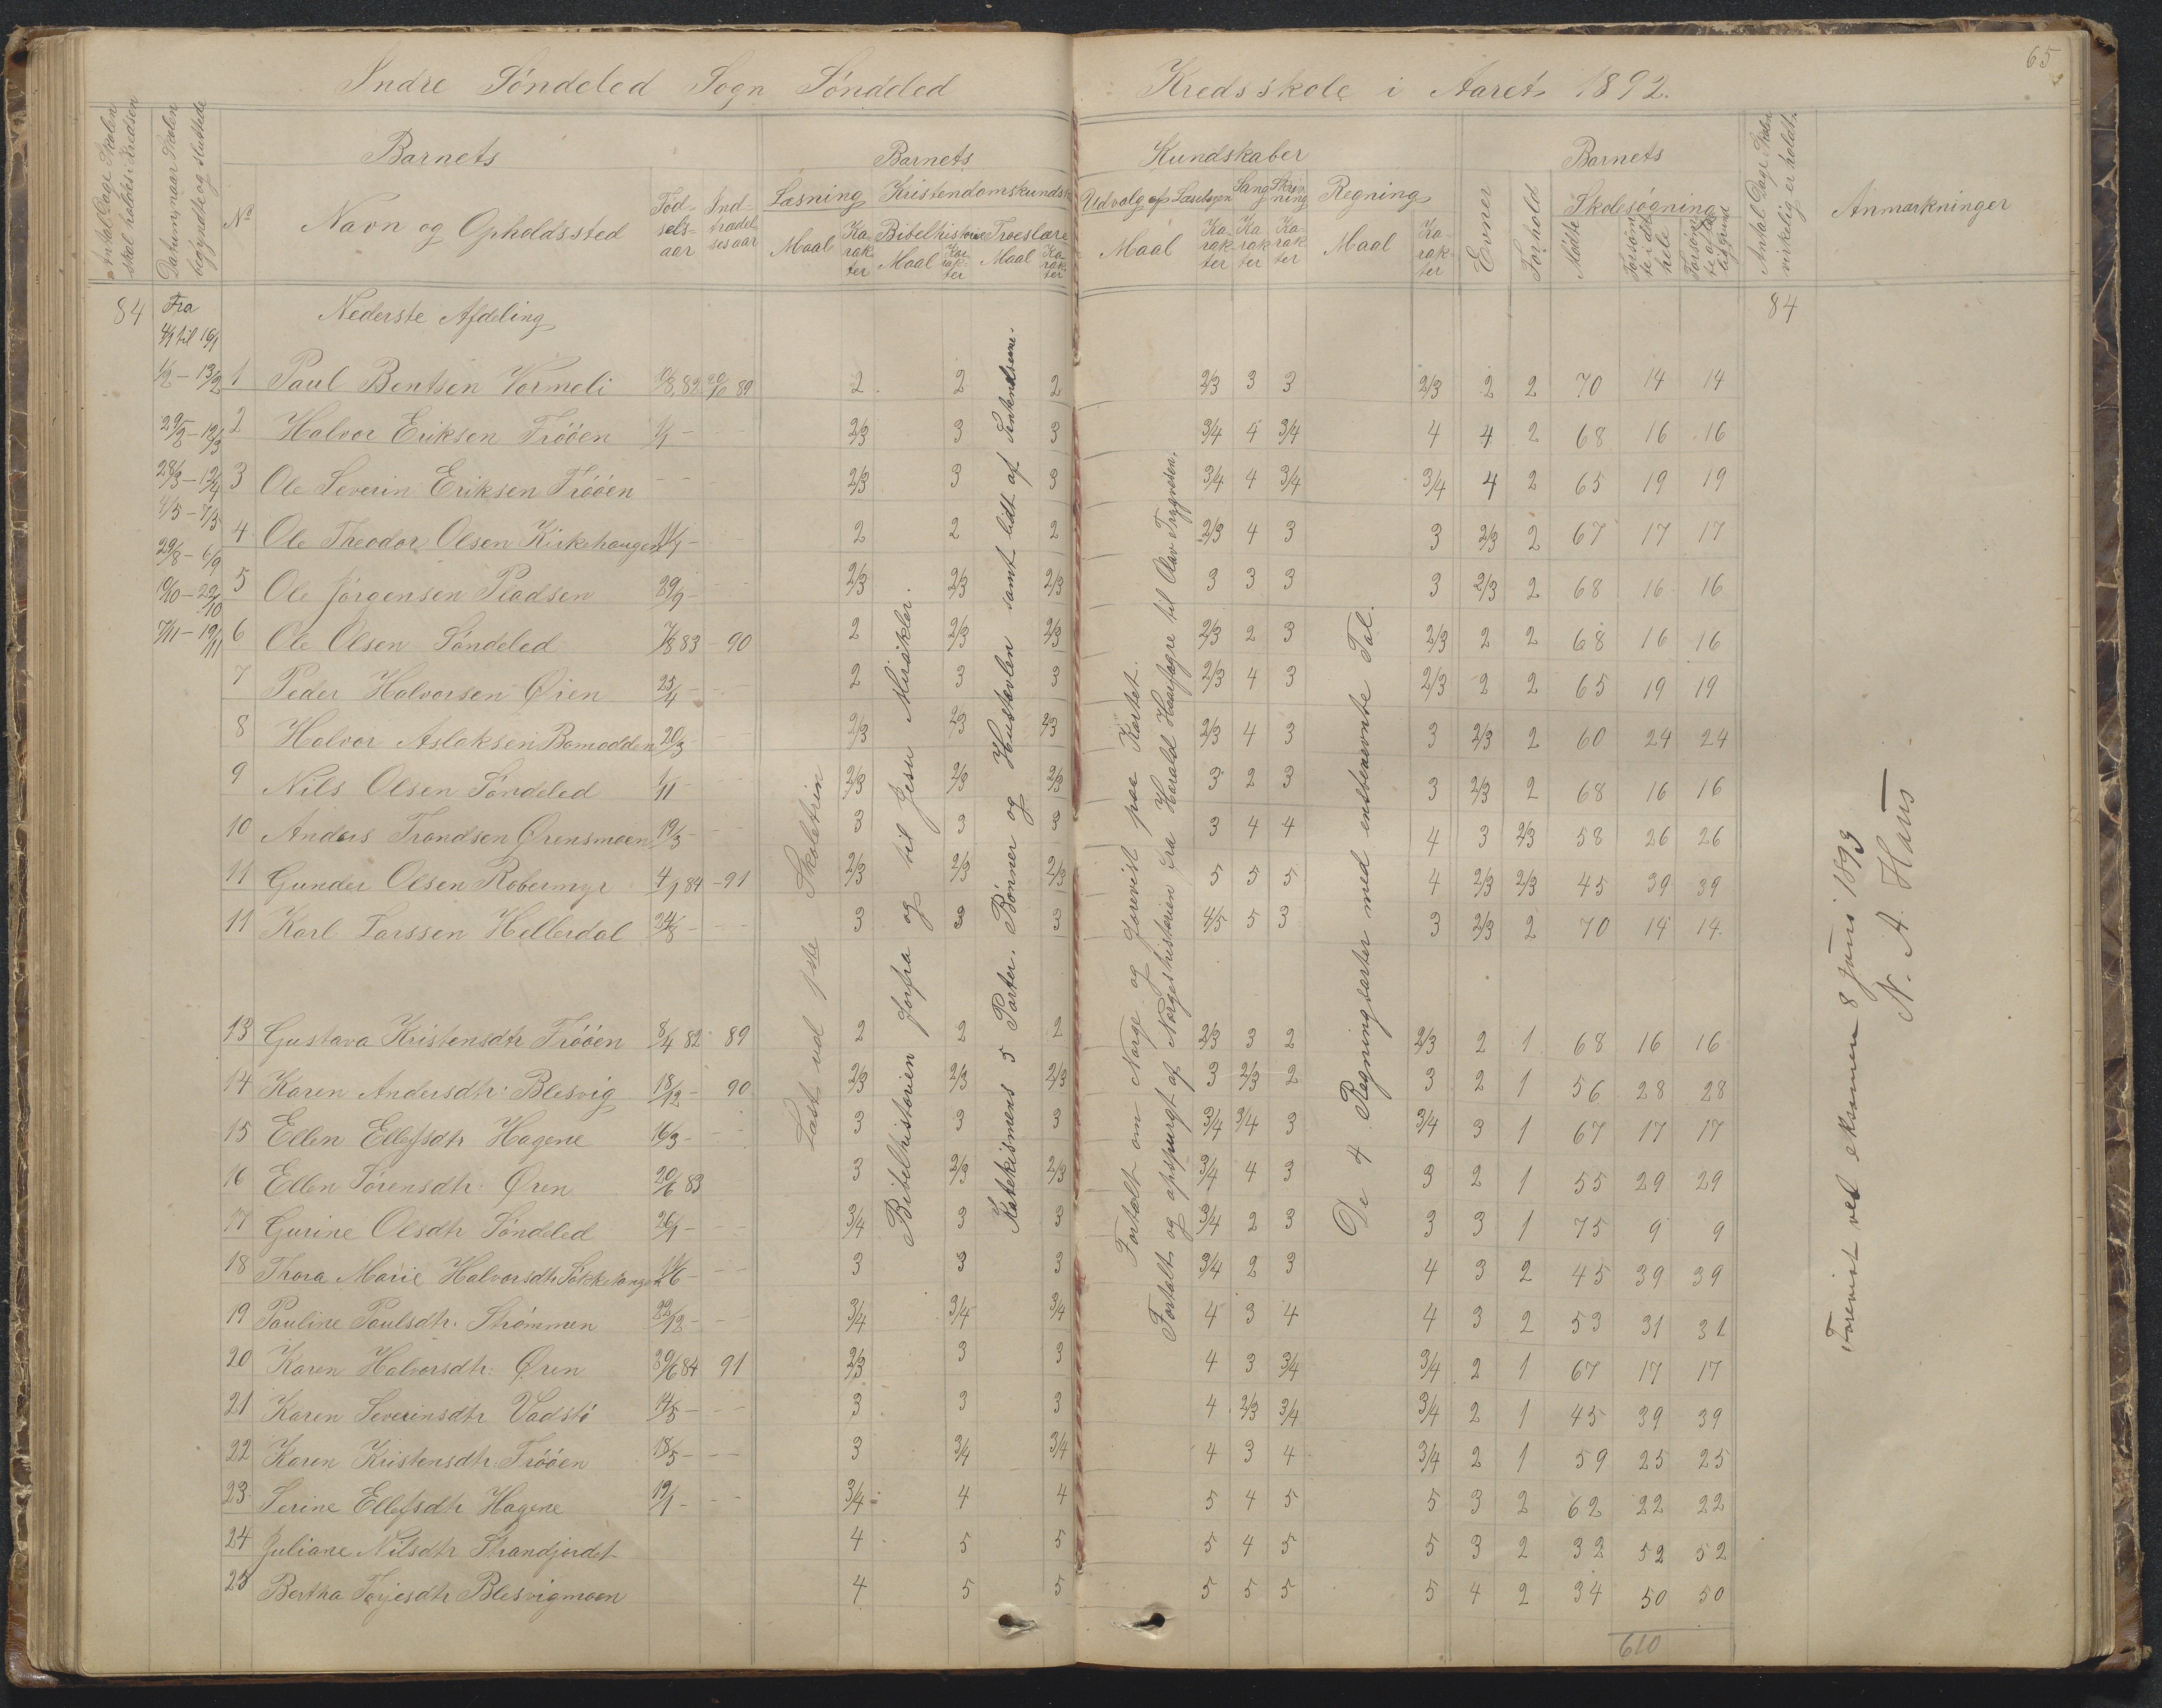 65
Indre Söndeled Sogn Söndeled Kredsskole i Aaret 1892.
Antal Dage Skolen skal holdes i Kredsen
Datum, naar Skolen begyndte og sluttede
Barnets
No
Navn og Opholdssted
Födselsaar
Indtrædelsesaar
Barnets Kundskaber
Læsning
Maal
Karakter
Kristendomskundsk
Bibelhistorie
Maal
Karakter
Troeslære
Maal
Karakter
Udvalg af Læsebogen
Maal
Karakter
Sang
Karakter
Skrivning
Karakter
Regning
Maal
Karakter
Barnets
Evner
Forhold
Skolesøgning
Mödte
Forsömte i det hele
Antal Dage Skolen virkelig er holdt.
Anmærkninger
84 Fra Nederste Afdeling 84
4/1 til 16/1
1/2 – 13/2
29/2 – 12/3
28/3 – 12/4
4/5 – 7/5
29/8 – 6/9
10/10 – 22/10
7/11 – 19/11
1 Paul Bentsen Vormeli 10/8 82 20/10 89 2 2 2 2/3 3 3 2/3 2 2 70 14 14
2 Halvor Eriksen Fröóen 1/1 – 2/3 3 3 3/4 4 3/4 4 4 2 68 16 16
3 Ole Severin Eriksen Fröóen – – 2/3 3 3 3/4 4 3/4 3/4 4 2 65 19 19
4 Ole Theodor Olsen Kirkehaugen 11/1 – 2 2 2 2/3 4 3 3 2/3 2 67 17 17
5 Ole Jörgensen Pladsen 29/9 – 2/3 2/3 2/3 3 3 3 3 2/3 2 68 16 16
6 Ole Olsen Söndeled 7/8 83 – 90 2 2/3 2/3 2/3 2 3 2/3 2 2 68 16 16
7 Peder Halvorsen Øien 25/4 – 2 3 3 2/3 4 3 2/3 2 2 65 19 19
8 Halvor Aslaksen Bomodden 20/3 – 2/3 2/3 2/3 2/3 4 3 3 2/3 2 60 24 24
9 Nils Olsen Söndeled 1/11 2/3 2/3 2/3 3 2 3 3 2/3 2 68 16 16
10 Anders Trondsen Ørensmoen 19/3 – 3 3 3 3 4 4 4 3 2/3 58 26 26
11 Gunder Olsen Robermyr 4/9 84 – 91 2/3 2/3 2/3 5 5 5 4 2/3 2/3 45 39 39
11 Karl Larssen Hellerdal 24/8 – 3 3 3 4/5 5 3 3 2/3 2 70 14 14.
13 Gustava Kristensdtr Fröóen 8/4 82 89 2 2 2 2/3 3 2 2/3 2 1 68 16 16
14 Karen Andersdtr. Blesvig 18/12 – 90 2/3 2/3 2/3 3 2/3 2 3 2 1 56 28 28
15 Ellen Ellefsdtr Hagene 16/3 – 3 3 3 3/4 3/4 3 3/4 3 1 67 17 17
16 Ellen Sörensdtr. Øren 20/6 83 3 2/3 2/3 3/4 4 3 3 2 1 55 29 29
17 Gurine Olsdtr Söndeled 26/1 – 3/4 3 3 3/4 2 3 3 3 1 75 9 9
18 Thora Marie Halvorsdtr Sökketangen 11/6 – 3 3 3 3/4 2 3 4 3 2 45 39 39
19 Pauline Paulsdtr. Strömmen 22/12 – 3/4 3/4 3/4 4 3 4 4 3 2 53 31 31
20 Karen Halvorsdtr. Øren 30/6 84 91 2/3 3 3 4 3 3/4 3/4 2 1 67 17 17
21 Karen Severinsdtr Vadstö 14/5 – 3 3 3 4 2/3 3/4 3/4 2 1 45 39 39
22 Karen Kristensdtr. Fröóen 18/5 – 3 3/4 3/4 4 3 4 3/4 2 1 59 25 25
23 Serine Ellefsdtr Hagene 19/1 – 3/4 4 4 5 4 5 5 3 2 62 22 22
24 Juliane Nilsdtr Strandjordet 4 5 5 5 4 5 5 3 2 32 52 52
25 Bertha Terjesdtr Blesvigmoen 4 5 5 5 5 5 5 4 2 34 50 50
610
Læst ud 1ste Skoletrin
Bibelhistorien forfra og til Jesu Mirakler.
Katekismens 5 Parter. Bönner og Hustavlen samt lidt af
Fortalt om Norge og forevist paa Kartet.
Fortalt og opspurgt af Norgeshistorien fra Harald Haarfagre til Olav Trygvesen.
De 4 Regningsarter med ensbenævnte Tal.
Forevist ved eksamen 8 Juni 1893
N. A.